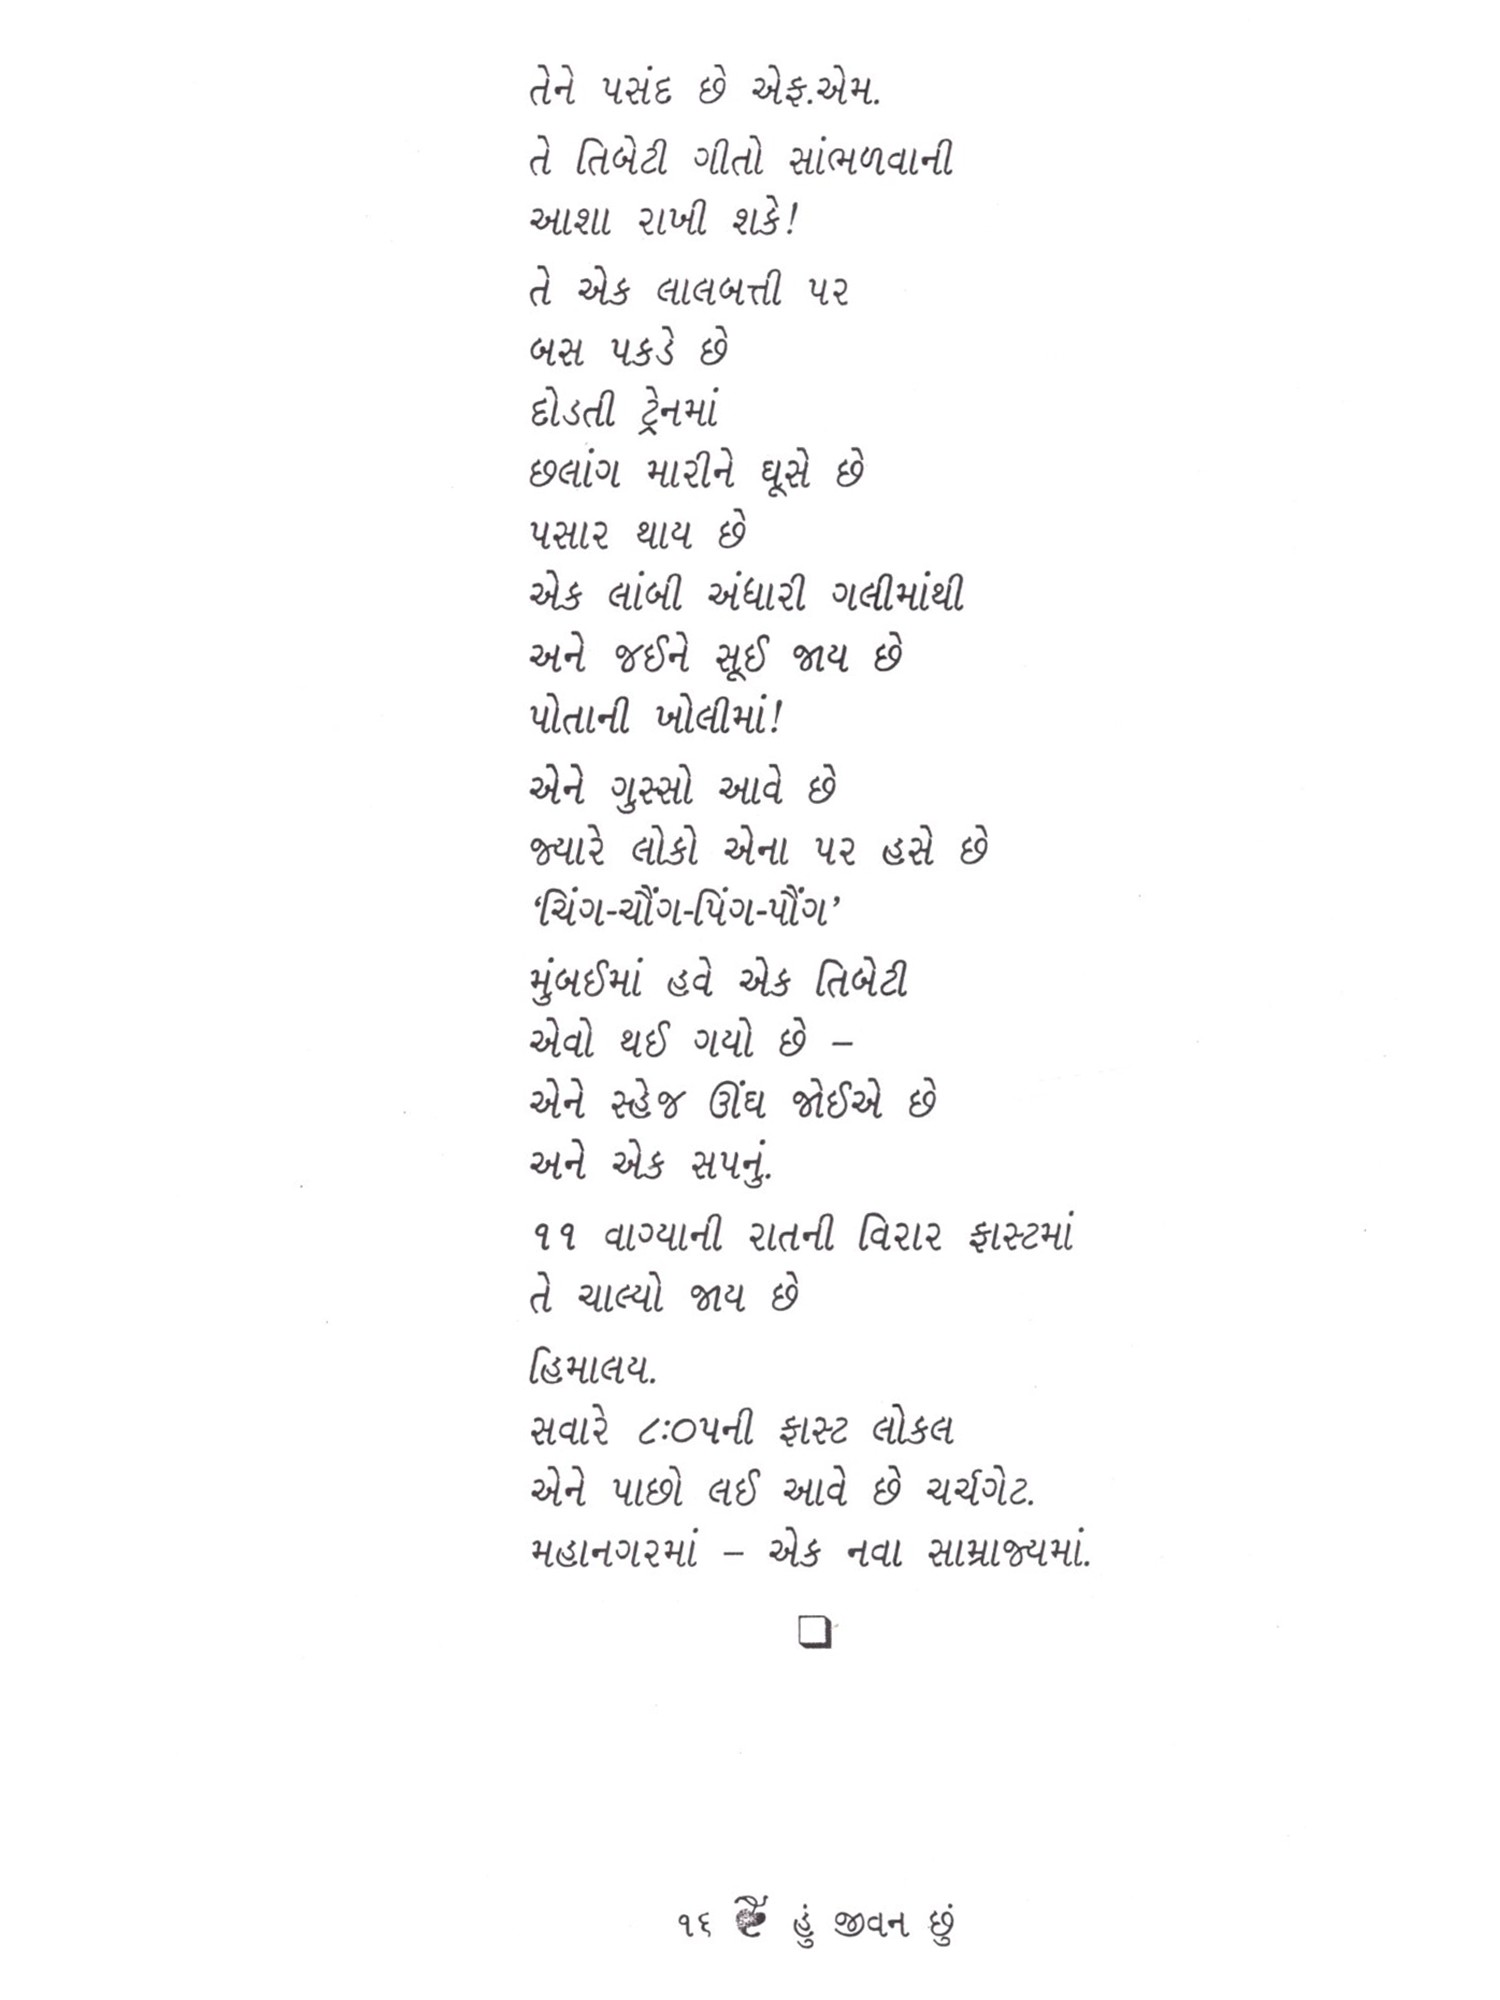 તેને પસંદ છે એફ.એમ.
તે તિબેટી ગીતો સાંભળવાની
આશા રાખી શકે!
તે એક લાલબત્તી પર
બસ પકડે છે
દોડતી ટ્રેનમાં
છલાંગ મારીને ઘૂસે છે
પસાર થાય છે
એક લાંબી અંધારી ગલીમાંથી
અને જઈને સૂઈ જાય છે
પોતાની ખોલીમાં!
એને ગુસ્સો આવે છે
જ્યારે લોકો એના પર હસે છે
‘ચિંગ-ચૌંગ-પિંગ-પૌંગ’
મુંબઈમાં હવે એક તિબેટી
એવો થઈ ગયો છે –
એને સ્હેજ ઊંઘ જોઈએ છે
અને એક સપનું.
૧૧ વાગ્યાની રાતની વિરાર ફાસ્ટમાં
તે ચાલ્યો જાય છે
હિમાલય.
સવારે ૮:૦૫ની ફાસ્ટ લોકલ
એને પાછો લઈ આવે છે ચર્ચગેટ.
મહાનગરમાં – એક નવા સામ્રાજ્યમાં.
૧૬ હું જીવન છું